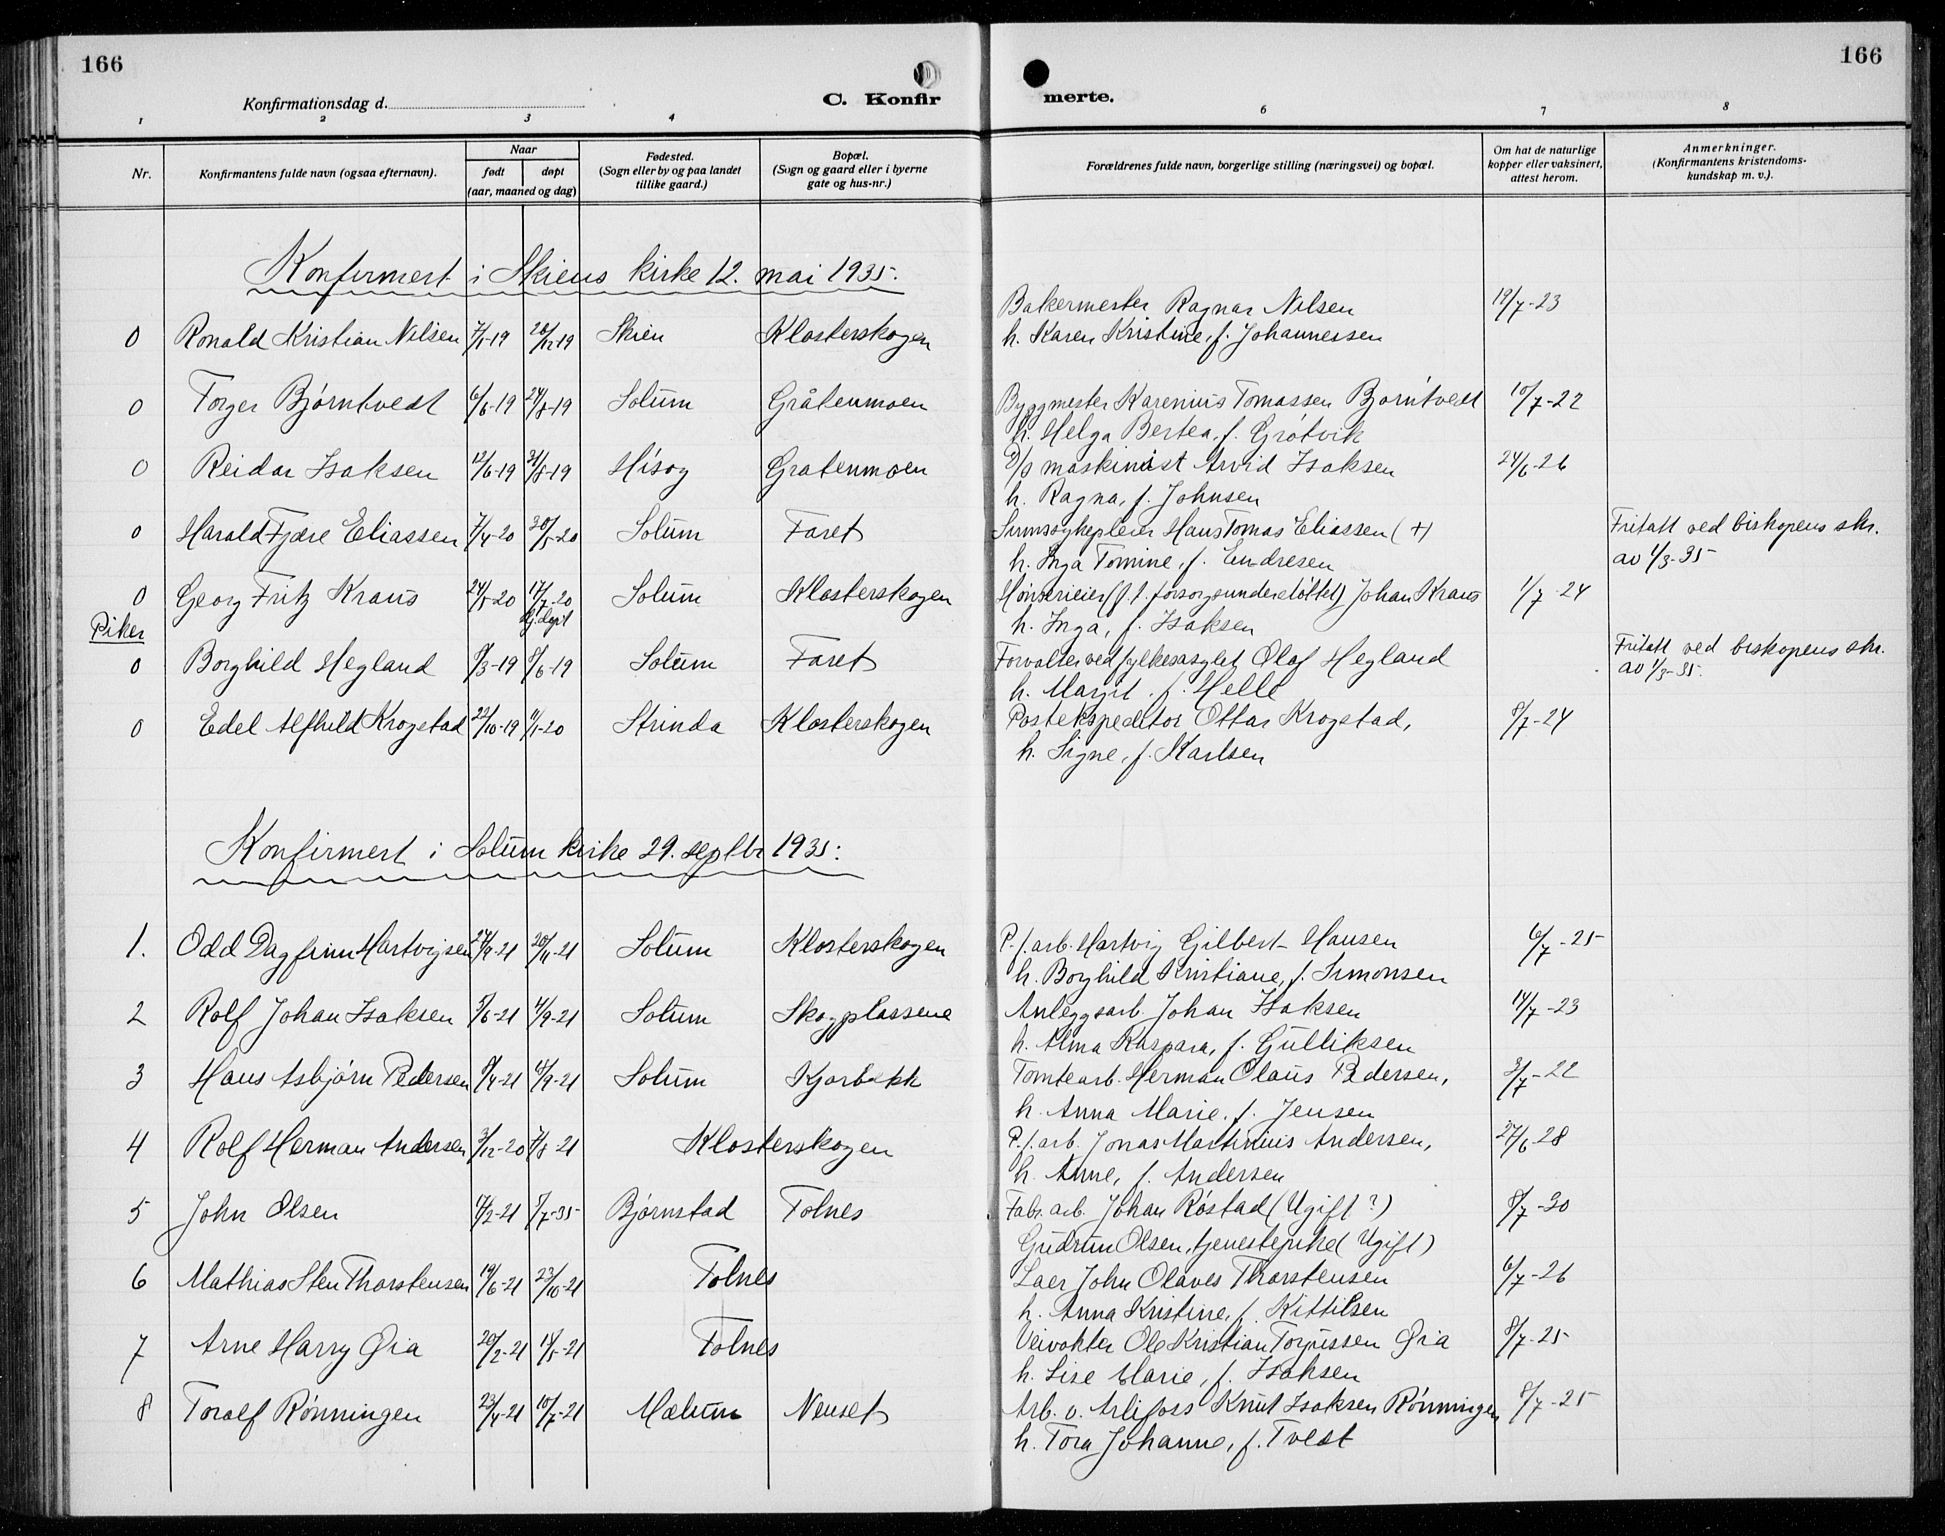 166
166
Konfirmationsdag d.
C. Konfir
merte.
1 2 3 4 6 7 8
Nr.
Konfirmantens fulde navn (ogsaa efternavn).
Naar
født døpt
(aar, maaned og dag)
Fødested.
(Sogn eller by og paa landet
tillike gaard.)
Bopæl.
(Sogn og gaard eller i byerne
gate og hus-nr.)
Forældrenes fulde navn, borgerlige stilling (næringsvei) og bopæl.
Om hat de naturlige
kopper eller vaksinert,
attest herom.
Anmerkninger.
(Konfirmantens kristendoms-
kundskap m. v.).
Konfirmert i Skiens kirke 12. mai 1935.
Bakermester Ragnar Nilsen 19/7-23
0 Ronald Kristian Nilsen 7/1-19 28/12-19 Skien Klosterskogen h. Karen Kristine, f. Johannessen
0 Torger Bjørntvedt 6/6-19 24/8-19 Solum Gråtenmoen Byggmester Karenius Tomassen Bjørntvedt 10/7-22
h. Helga Bertea, f. Grøtvik
0 Reidar Isaksen 12/6-19 31/8-19 Hisøy Gratenmoen D/S maskinist Arvid Isaksen 24/6-26
h. Ragna, f. Johnsen
0 Harald Fjære Eliassen 7/4-20 30/5-20 Solum Faret Sinnsykepleier Hans Tomas Eliassen (+) Fritatt ved biskopens skr.
h. Inga Tomine, f. Endresen av 1/3-35
0 Georg Fritz Kraus 24/5-20 17/7-20 Solum Klosterskogen Hønserieier (f.t. forsorgsunderstøttet) Johan Kraus 1/7-24
hj.døpt h. Inga, f. Isaksen
Piker
0 Borghild Hegland 9/3-19 9/6-19 Solum Faret Forvalter ved fylkesasylet Olaf Hegland Fritatt ved biskopens skr.
h. Margit f. Helle av 1/3-35.
0 Edel Alfhild Krogstad 22/10-19 11/1-20 Strinda Klosterskogen Postekspeditør Ottar Krogstad, 8/7-24
h. Signe, f. Karlsen
Konfirmert i Solum kirke 29. septbr 1935:
1. Odd Dagfinn Hartvigsen 27/9-21 20/11-21 Solum Klosterskogen P.f.arb. Hartvig Gilbert Hansen 6/7-25
h. Borghild Kristiane, f. Simonsen
2 Rolf Johan Isaksen 5/6-21 4/9-21 Solum Skogplassene Anleggsarb. Johan Isaksen 14/7-23
h. Alma Kaspara, f. Gulliksen
3 Hans Asbjørn Pedersen 9/4-21 18/9-21 Solum Kjørbekk Tomtearb. Herman Olaus Pedersen, 3/7-22
h. Anna Marie, f. Jensen
4 Rolf Herman Andersen 3/12-20 7/8-21 Klosterskogen P.f.arb. Jonas Martinius Andersen, 27/6-28
h. Anne, f. Andersen
5 John Olsen 17/2-21 5/7-35 Bjørnstad Tolnes Fabr.arb. Johan Røstad (Ugift?) 8/7-30
Gudrun Olsen, tjenestepike (Ugift)
6 Mathias Sten Thorstensen 19/6-21 23/10-21 Tolnes Laer John Olaves Thorstensen 6/7-26
h. Anna Kristine, f. Kittilsen
7 Arne Harry Øia 20/2-21 15/5-21 Tolnes Veivokter Ole Kristian Torjussen Øia 8/7-25
h. Lise Marie, f. Isaksen
8 Toralf Rønningen 23/4-21 10/7-21 Mælum Nenset Arb. v. Arlifoss Knut Isaksen Rønningen 8/7-25
h. Tora Johanne, f. Tvedt